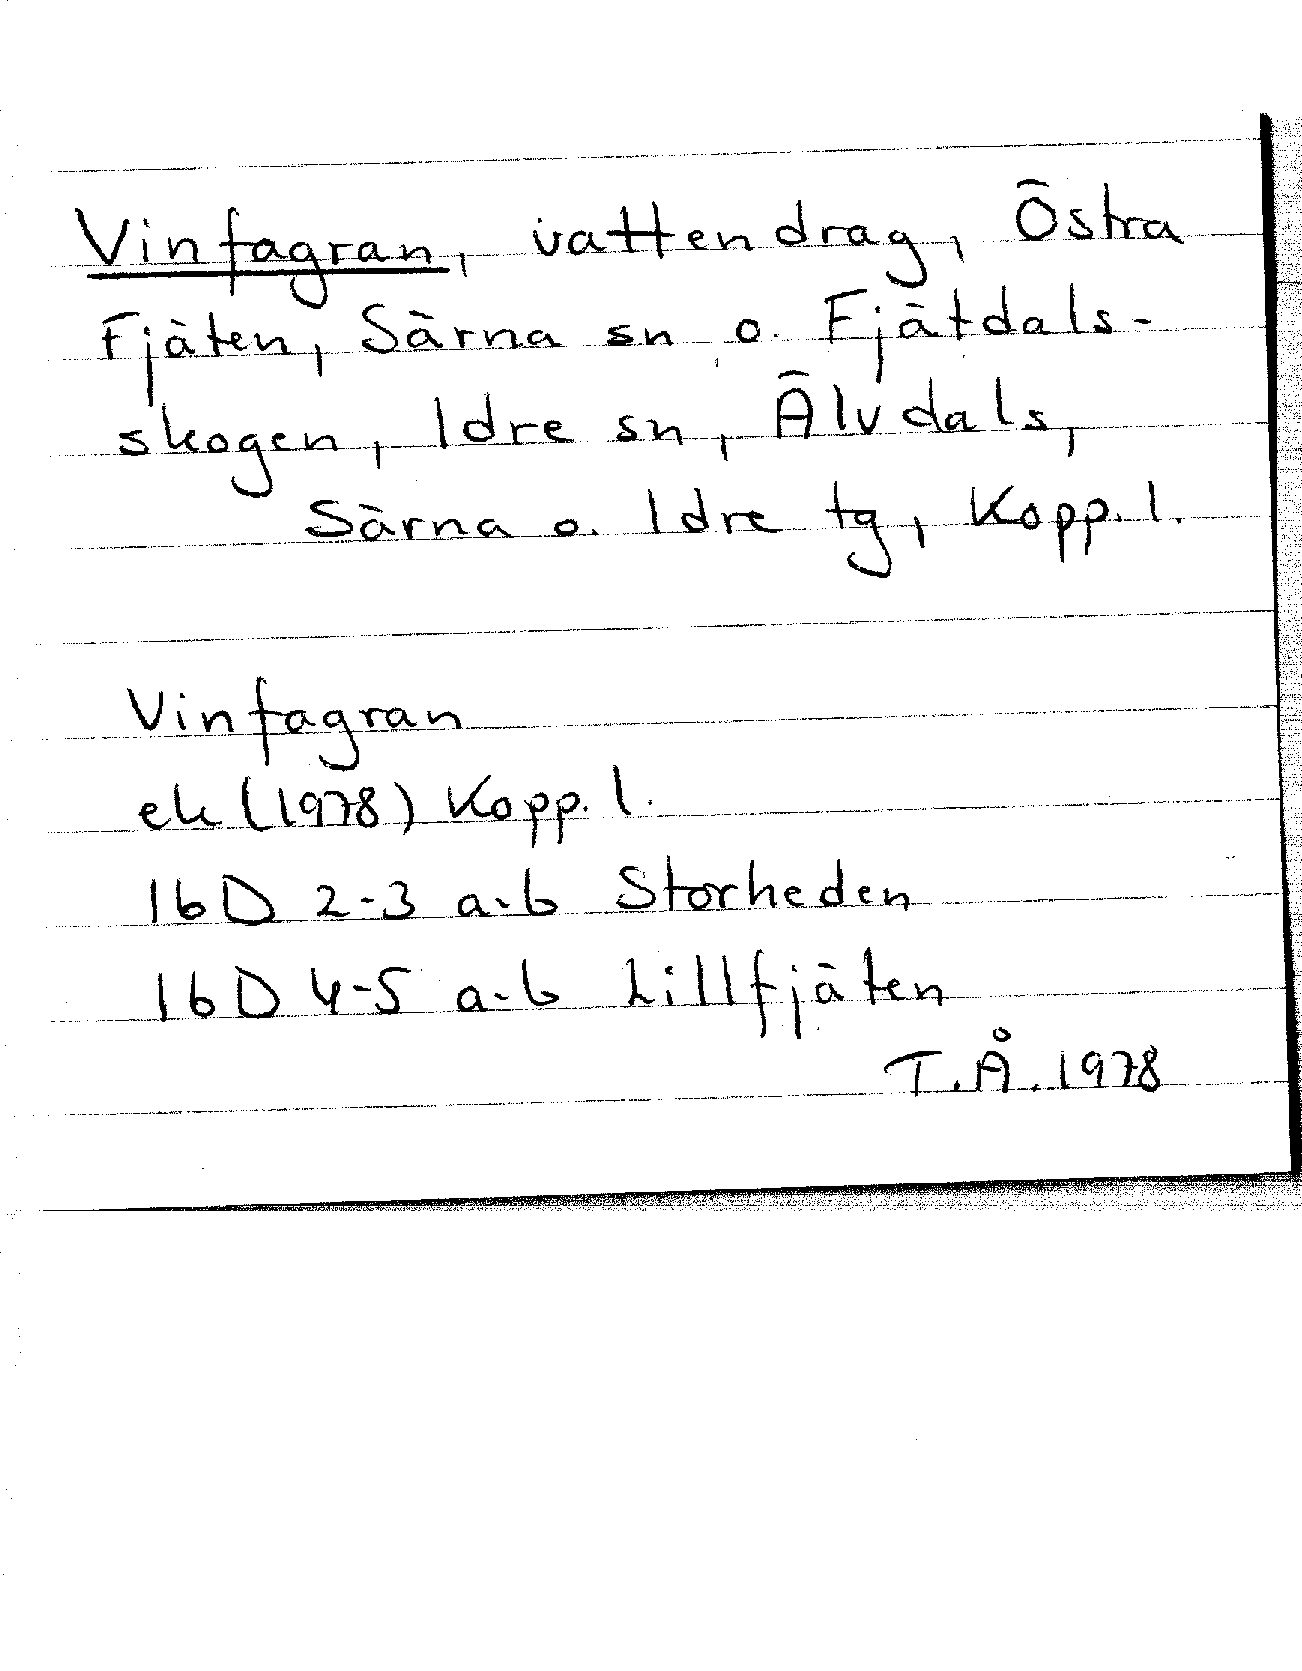 Vinfagran, vattendrag, Östra
Fjäten, Särna sn o. Fjätdals-
skogen, Idre sn, Älvdals,
Särna o. Idre tg, Kopp. l.
Vinfagran
ek (1978) Kopp. l.
16D 2-3 a-b Storheden
16D 4-5 a-b Lillfjäten
T.Å. 1978